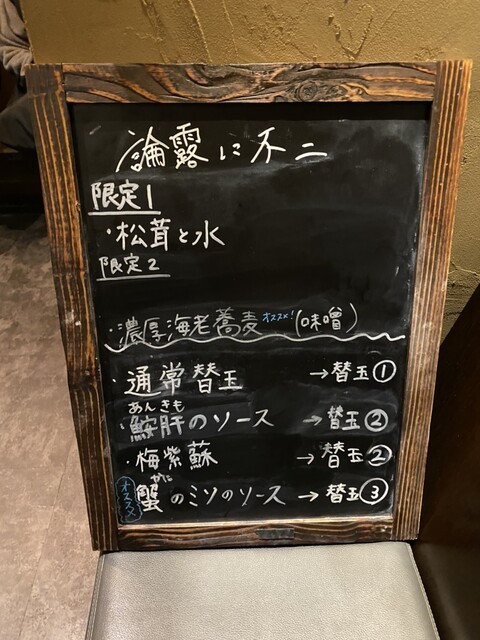 論露に不二
限定1
・松茸と水
限定2
・濃厚海老蕎麦 オススメ! (味噌)
・通常替玉 →替玉①
あんきも
・鮟肝のソース →替玉②
・梅紫蘇 →替玉②
かに
オススメ 蟹のミソのソース →替玉③